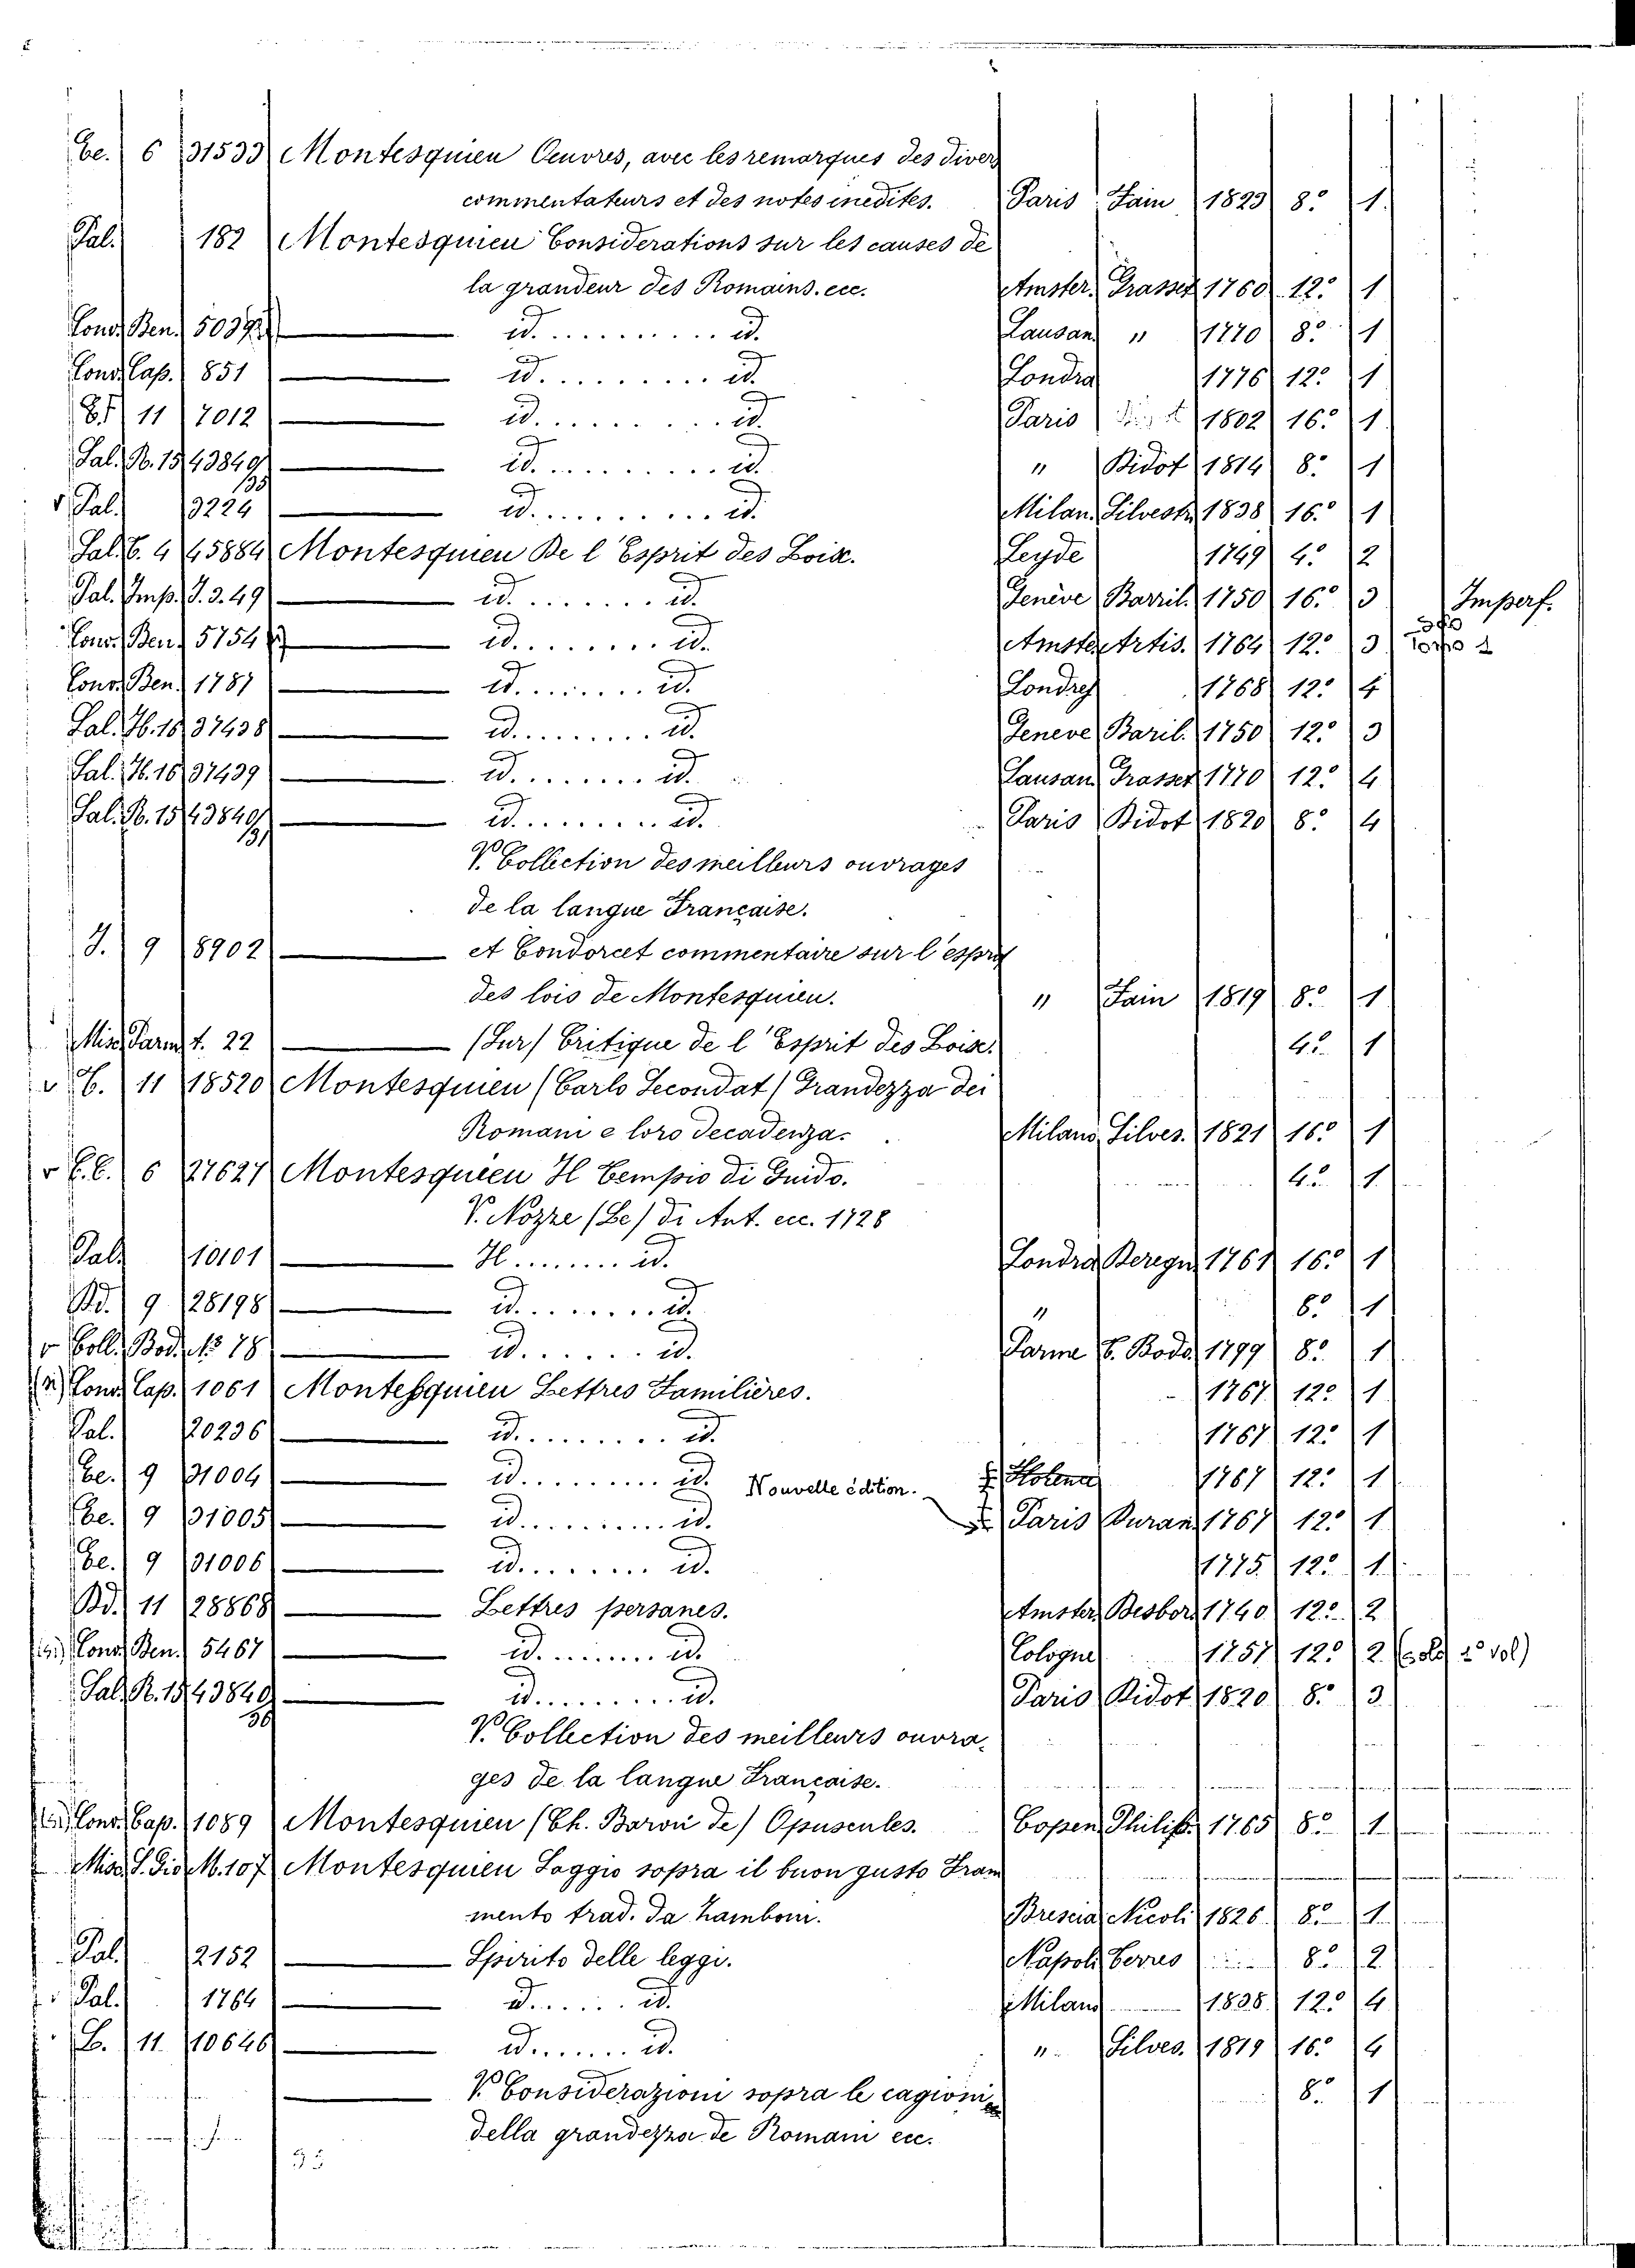 Ce. 6 31533 Montesquieu Oeuvres, avec les remarques des divers
commentateurs et des notes inedites. Paris Fain 1823 8.° 1.
Pal. 182 Montesquieu Considerations sur les causes de
la grandeur des Romains. ecc. Amster. Grasset 1760 12.° 1
Conv. Ben. id. .......... id. Lausan. " 1770 8.° 1
Conv. Cap. 851 id. .......... id. Londra 1776 12.° 1
11 7012 id. .......... id. Paris 1802 16.° 1
Sal. B. 15 43840/135 id. .......... id. " Didot 1814 8.° 1
v Pal. 3224 id. .......... id. Milan. Silvestr. 1838 16.° 1
Sal. C. 4 45884 Montesquieu De l'Esprit des Loix. Leyde 1749 4.° 2
Pal. Imp. J. 3. 49 id. ....... id. Genève Barril. 1750 16.° 3 Imperf.
Conv. Ben. 5754 id. ........ id. Amster Artis. 1764 12.° 3
Conv. Ben. 1787 id. ........ id. Londres 1768 12.° 4
Sal. H. 16 37438 id. ........ id. Geneve Baril. 1750 12.° 3
Sal. H. 16 37439 id. ........ id. Lausan. Grasset 1770 12.° 4
Sal. B. 15 43840/131 id. ........ id. Paris Didot 1820 8.° 4
V. Collection des meilleurs ouvrages
de la langue Française.
J. 9 8902 et Condorcet commentaire sur l'esprit
des lois de Montesquieu. " Fain 1819 8.° 1
Misc. Parm. t. 22 (Sur) Critique de l'Esprit des Loix. 4.° 1
v C. 11 18520 Montesquieu (Carlo Secondat) Grandezza dei
Romani e loro decadenza. Milano Silves. 1821 16.° 1
v C.C. 6 27627 Montesquieu Il Tempio di Gnido. 4.° 1.
V. Nozze (Le) di Ant. ecc. 1728
Pal. 10101 Il ........ id. Londra Beregn. 1767 16.° 1
Bd. 9 28198 id. ........ id. " 6.° 1
v Coll. Bod. N.° 78 id. ...... id. Parme C. Bodo. 1799 8.° 1
Conv. Cap. 1061 Montesquieu Lettres Familières. 1767 12.° 1
Pal. 20236 id. ......... id. 1767 12.° 1
Ce. 9 31004 id. ........ id. Nouvelle èdition. Florence 1767 12.° 1
Ce. 9 31005 id. ......... id. Paris Duran. 1767 12.° 1
Ce. 9 31006 id. ........ id. 1775 12.° 1
Bd. 11 28868 Lettres persanes. Amster. Desbor. 1740 12.° 2
Conv. Ben. 5467 id. ....... id. Cologne 1757 12.° 2 2° vol)
Sal. B. 15 43840/36 id. ........ id. Paris Didot 1820 8.° 3
V. Collection des meilleurs ouvra-
ges de la langue Française.
Conv. Cap. 1089 Montesquieu (Ch. Baron de) Opuscules. Copen. Philib. 1765 8.° 1
Misc. S. Gio. M. 107 Montesquieu Saggio sopra il buon gusto Fram
mento trad. da Zamboni. Brescia Nicoli 1826 8.° 1
Pal. 2152 Spirito delle leggi. Napoli Terres 8.° 2
Pal. 1764 id. ...... id. Milano 1838 12.° 4
C. 11 10646 id. ...... id. " Silves. 1819 16.° 4
V. Considerazioni sopra le cagioni 8.° 1
della grandezza de Romani ecc.